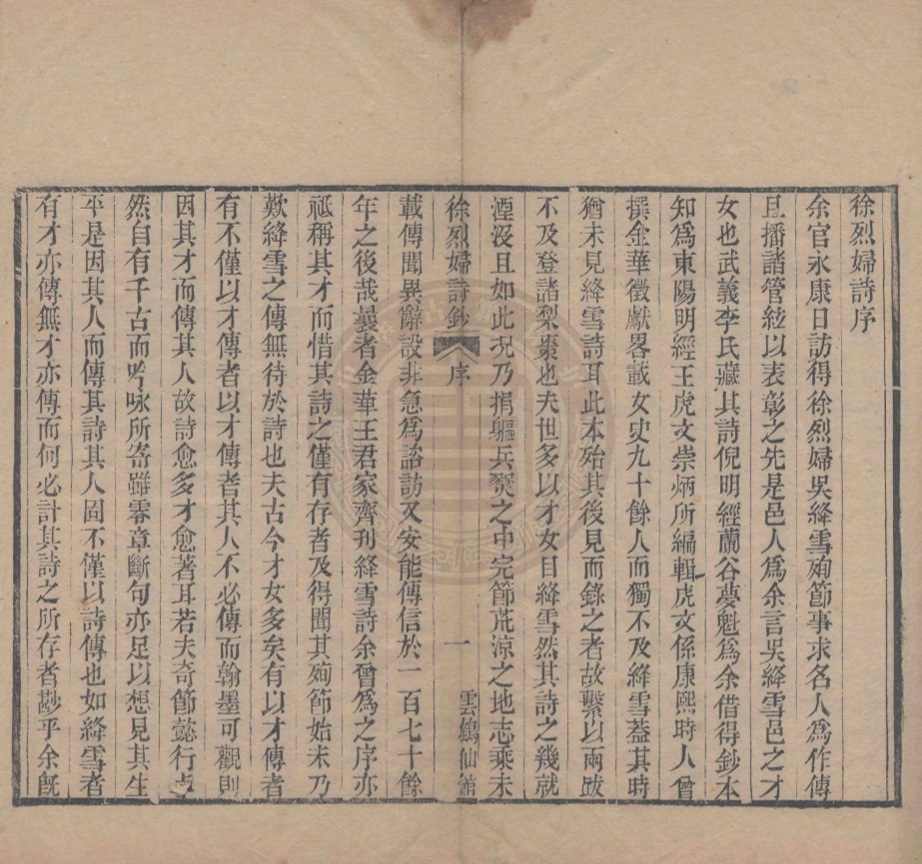 徐烈婦詩序
余官永康日訪得徐烈婦吳絳雪殉節事求名人爲作傳
且播諸管絃以表彰之先是邑人爲余言吳絳雪邑之才
女也武義李氏藏其詩倪明經蘭谷夢魁爲余借得鈔本
知爲東陽明經王虎文崇炳所編輯虎文係康熙時人曾
撰金華徵獻畧載女史九十餘人而獨不及絳雪葢其時
猶未見絳雪詩耳此本殆其後見而錄之者故繫以兩跋
不及登諸梨棗也夫世多以才女目絳雪然其詩之幾就
湮沒且如此况乃捐軀兵燹之中完節荒涼之地志乘未
徐烈婦詩鈔 序 一 雲鶴仙館
載傳聞異辭設非急爲諮訪又安能傳信於一百七十餘
年之後哉曩者金華王君家齊刊絳雪詩余曾爲之序亦
祗稱其才而惜其詩之僅有存者及得聞其殉節始末乃
歎絳雪之傳無待於詩也夫古今才女多矣有以才傳者
有不僅以才傳者以才傳者其人不必傳而翰墨可觀則
因其才而傳其人故詩愈多才愈著耳若夫奇節懿行卓
然自有千古而吟咏所寄雖零章斷句亦足以想見其生
平是因其人而傳其詩其人固不僅以詩傳也如絳雪者
有才亦傳無才亦傳而何必計其詩之所存者尠乎余旣